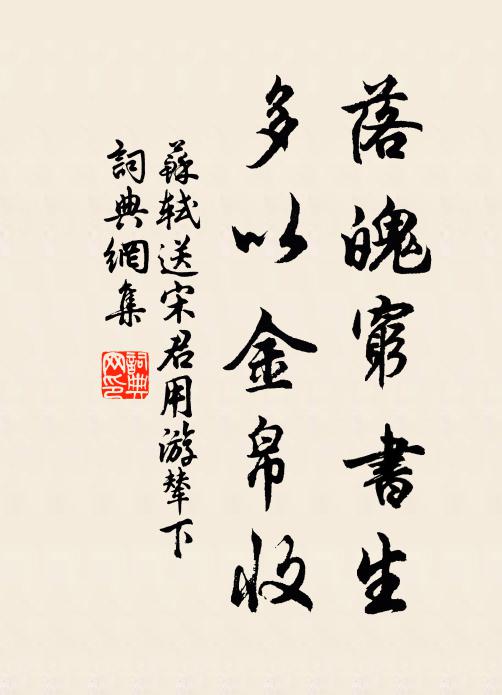 落魄窮書生
多以金帛收
蘇軾送宋君用游輦下
詞典網集
詞典网印